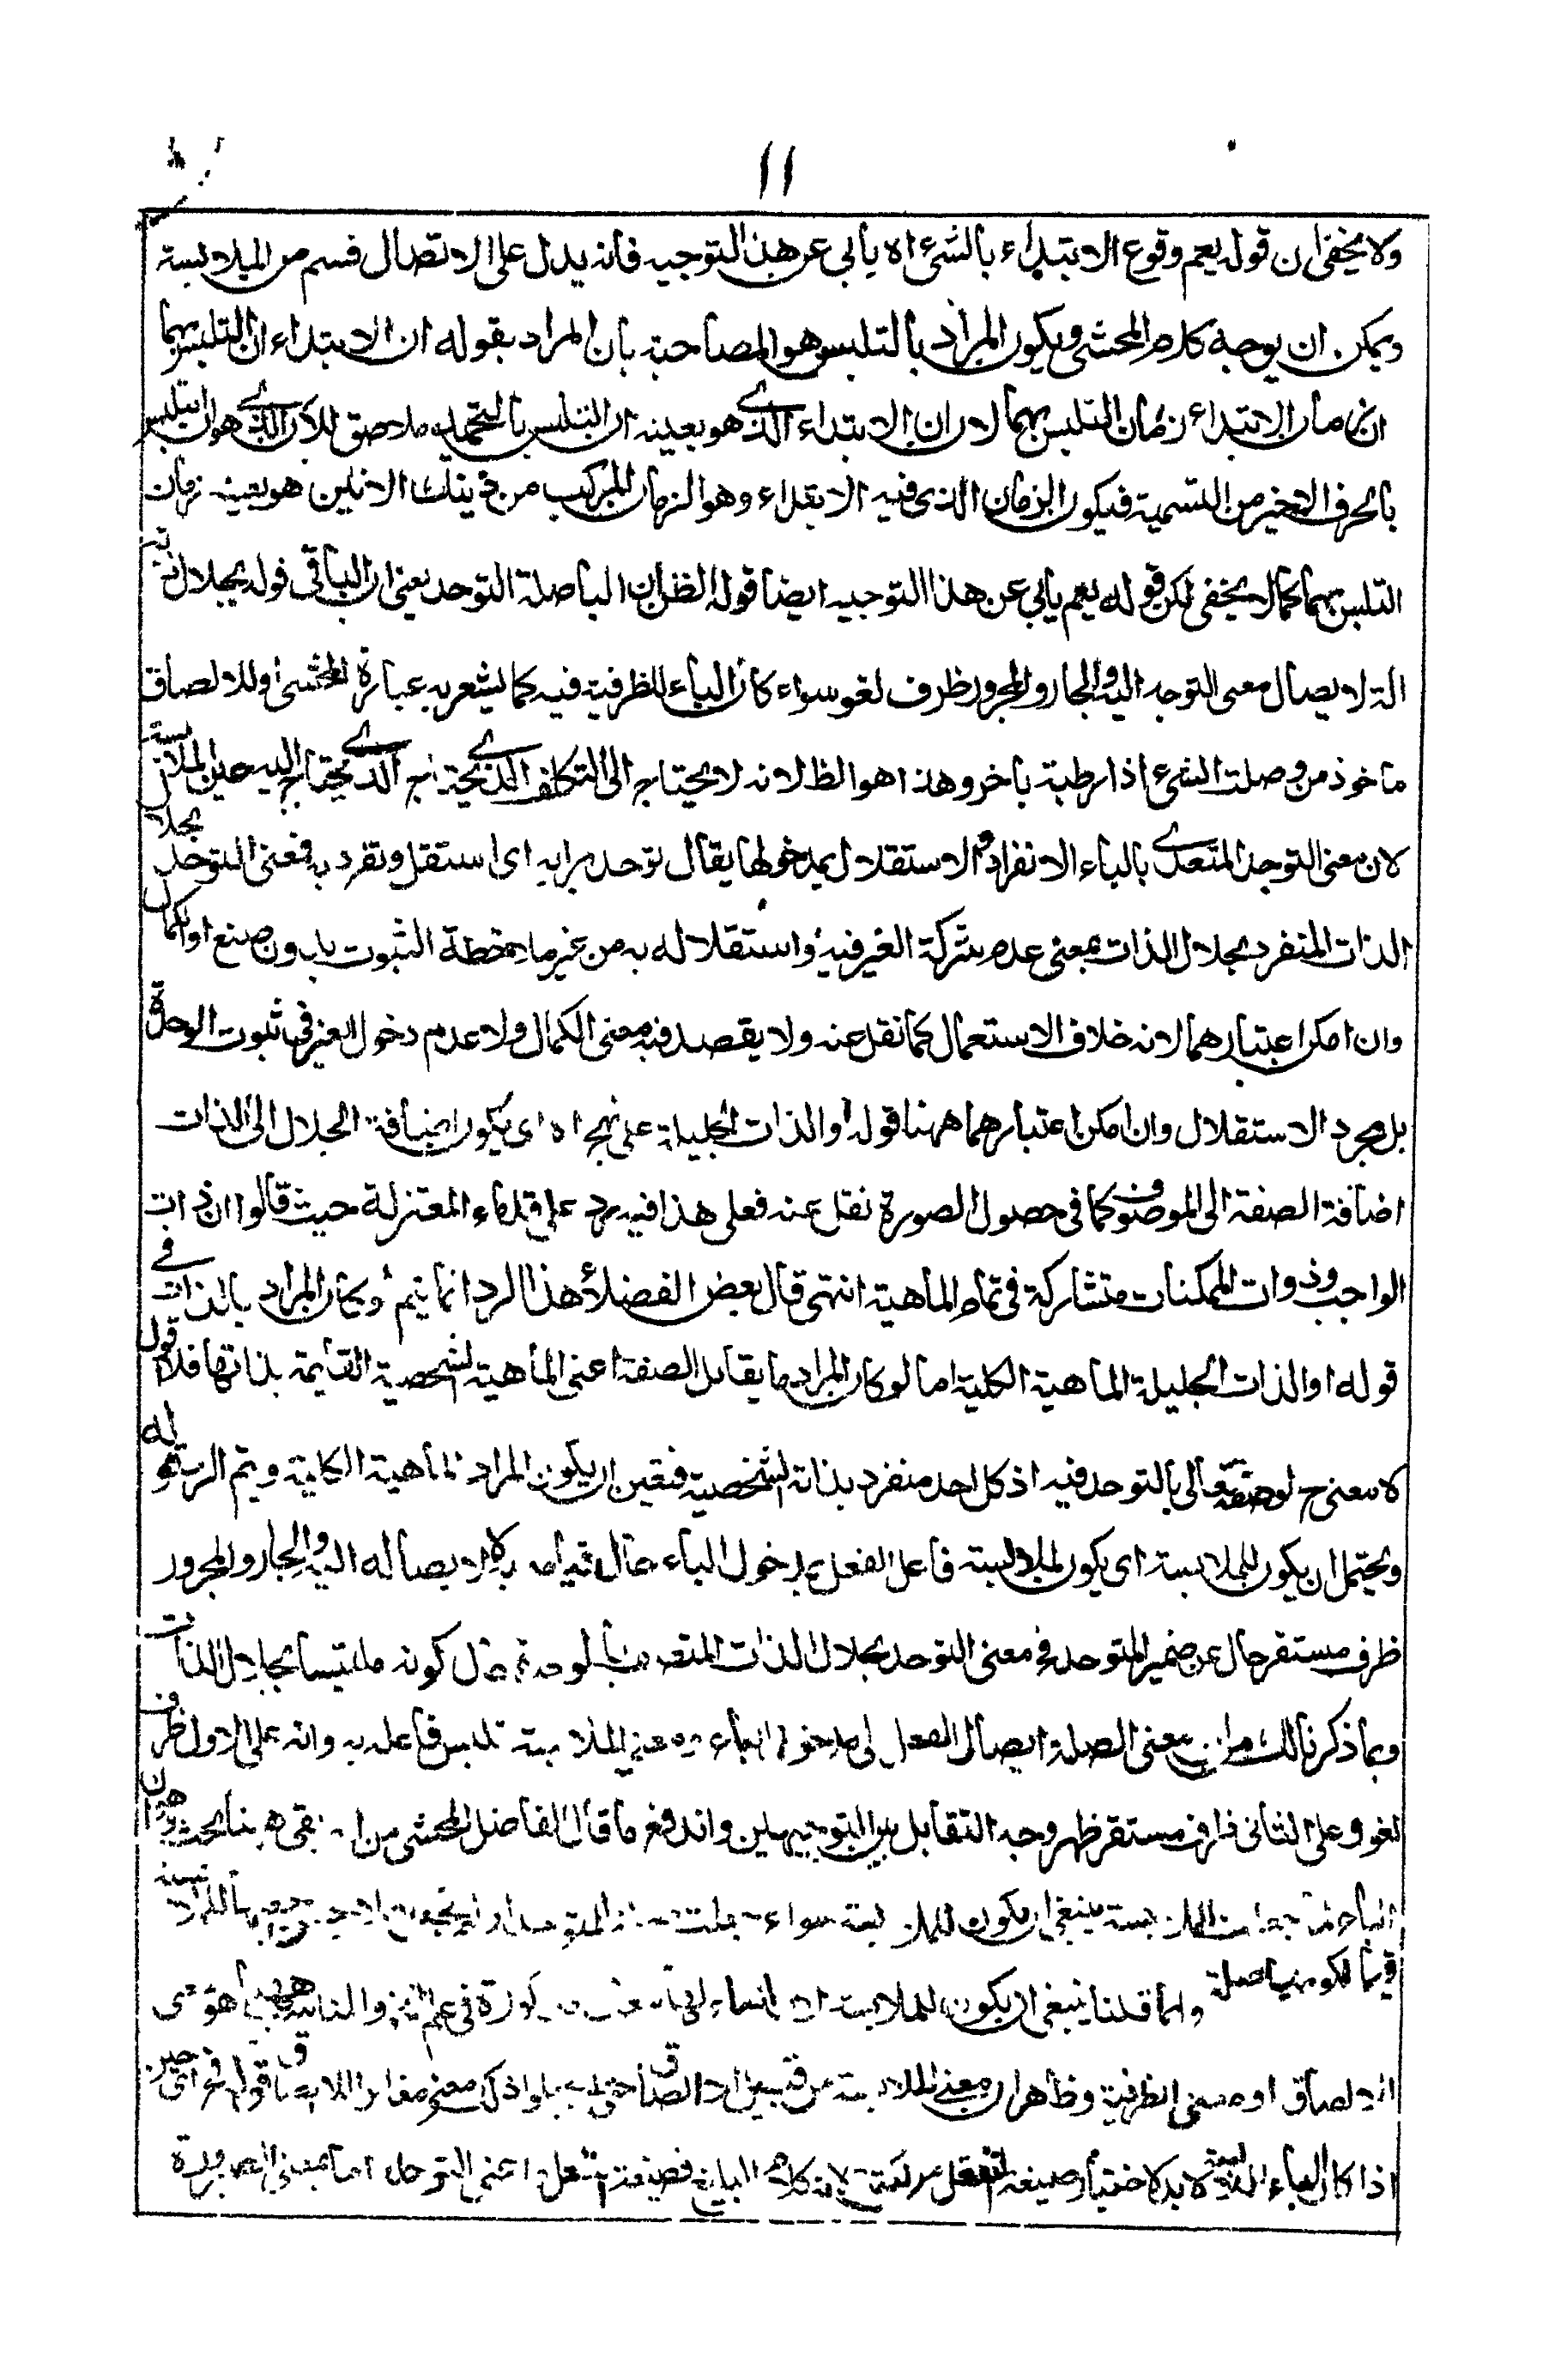 ١١
ولا يخفى ان قوله يعم وقوع الابتداء بالشئ اه يأبى عن هذا التوجيه فانه يدل على الاتصال قسم من الملابسة
ويمكن ان يوجه كلام المحشى ويكون المراد بالتلبس هو المصاحبة بان المراد بقوله ان الابتداء ان التلبس بهما
ان زمان الابتداء زمان التلبس بهما لان ان الابتداء الذى هو بعينه ان التلبس بالتحميد ملاصق للآن الذى هو ان التلبس
بالحرف الاخير من التسمية فيكون الزمان الذى فيه الابتداء وهو الزمان المركب من ذينك الانين هو بعينه زمان
التلبس بهما كما لا يخفى لكن قوله يعم يأبى عن هذا التوجيه ايضا قوله الظ ان الباصلة التوحد يعنى ان الباء فى قوله بجلال ذاته
الة لايصال معنى التوحد اليه والجار والمجرور ظرف لغو سواء كان الباء للظرفية فيه كما يشعر به عبارة المحشى او للالصاق
ماخوذ من وصلت الشئ اذا ربطته باخر وهذا هو الظ لانه لا يحتاج الى التكلف الذى يحتاج الذى يحتاج اليه حين الملابسة
لان معنى التوحد المتعدى بالباء الانفراد والاستقلال بمدخولها يقال توحد برايه اى استقل وتفرد به فمعنى التوحد بجلال
الذات المنفرد بجلال الذات بمعنى عدم شركة الغير فيه واستقلاله به من غير ملاحظة الثبوت بدون صنع او الكمال
وان امكن اعتبارهما لانه خلاف الاستعمال كما نقل عنه ولا يقصد فيه معنى الكمال ولا عدم دخول الغير فى ثبوت الوحدة
بل مجرد الاستقلال وان امكن اعتبارهما ههنا قوله او الذات الجليلة على نهج اه اى يكون اضافة الجلال الى الذات
اضافة الصفة الى الموصوف كما فى حصول الصورة نقل عنه فعلى هذا فيه رد على قدماء المعتزلة حيث قالوا ان ذات
الواجب وذوات الممكنات متشاركة فى تمام الماهية انتهى قال بعض الفضلاء هذا الرد انما يتم لو كان المراد بالذات فى
قوله او الذات الجليلة الماهية الكلية اما لو كان المراد ما يقابل الصفة اعنى الماهية الشخصية القائمة بذاتها فلا اقول
لا معنى ح لوصفه تعالى بالتوحد فيه اذ كل احد منفرد بذاته الشخصية فتعين ان يكون المراد الماهية الكلية ويتم الرد قوله
ويحتمل ان يكون للملابسة اى يكون لملابسة فاعل الفعل بمدخول الباء حال قيامه به لا لايصاله اليه والجار والمجرور
ظرف مستقر حال عن ضمير المتوحد فمعنى التوحد بجلال الذات المتصف بالوحدة حال كونه ملتبسا بجلال الذات
وبما ذكرنا لك من ان معنى الصلة ايصال الفعل الى مدخول الباء ومعنى الملابسة تلبس فاعله به وانه على الاول ظرف
لغو وعلى الثانى ظرف مستقر ظهر وجه التقابل بين التوجيهين واندفع ما قال الفاضل المحشى من انه بقى ههنا بحث وهو ان
الباء ينبغى ان يكون للملابسة سواء جعلت صلة المتوحد او لم يجعل
وانما قلنا ينبغى ان يكون للملابسة لان
الالصاق او معنى الظرفية وظاهر ان معنى الملابسة من قبيل الالصاق
اذا كان الباء للملابسة لا بد لاختيار صيغة التفعل من نكتة لانه كلام البليغ فصيغة التفعل اعنى التوحد اما بمعنى الصيرورة